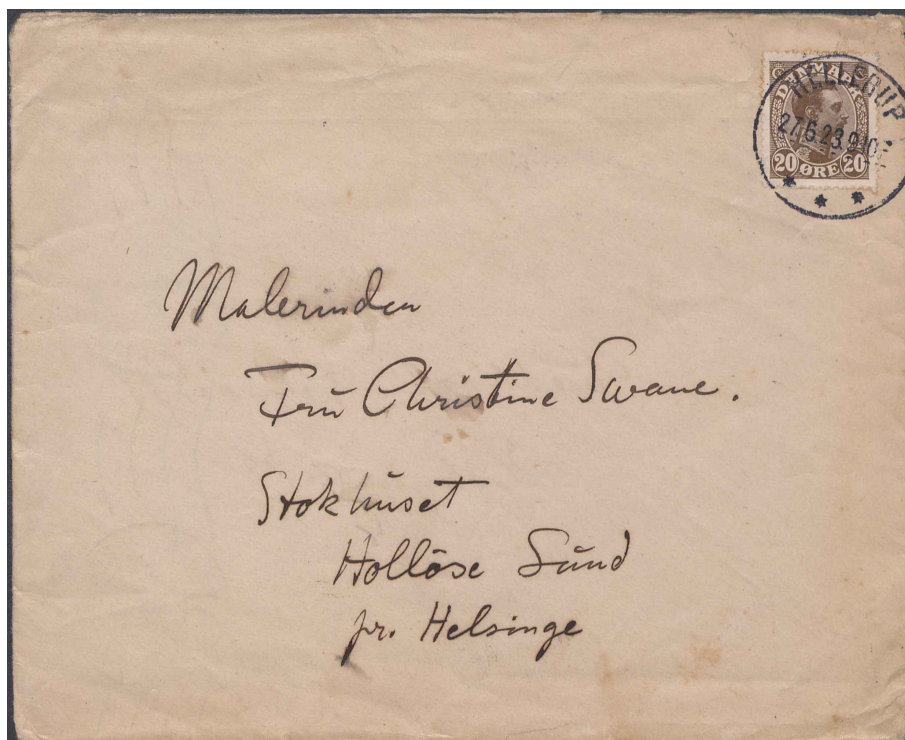 DANMARK
HELLERUP
27.6.23.9
20 ØRE 20
Malerinden
Frū Christine Swane.
Stokhūset
Hollöse Sūnd
pr. Helsinge